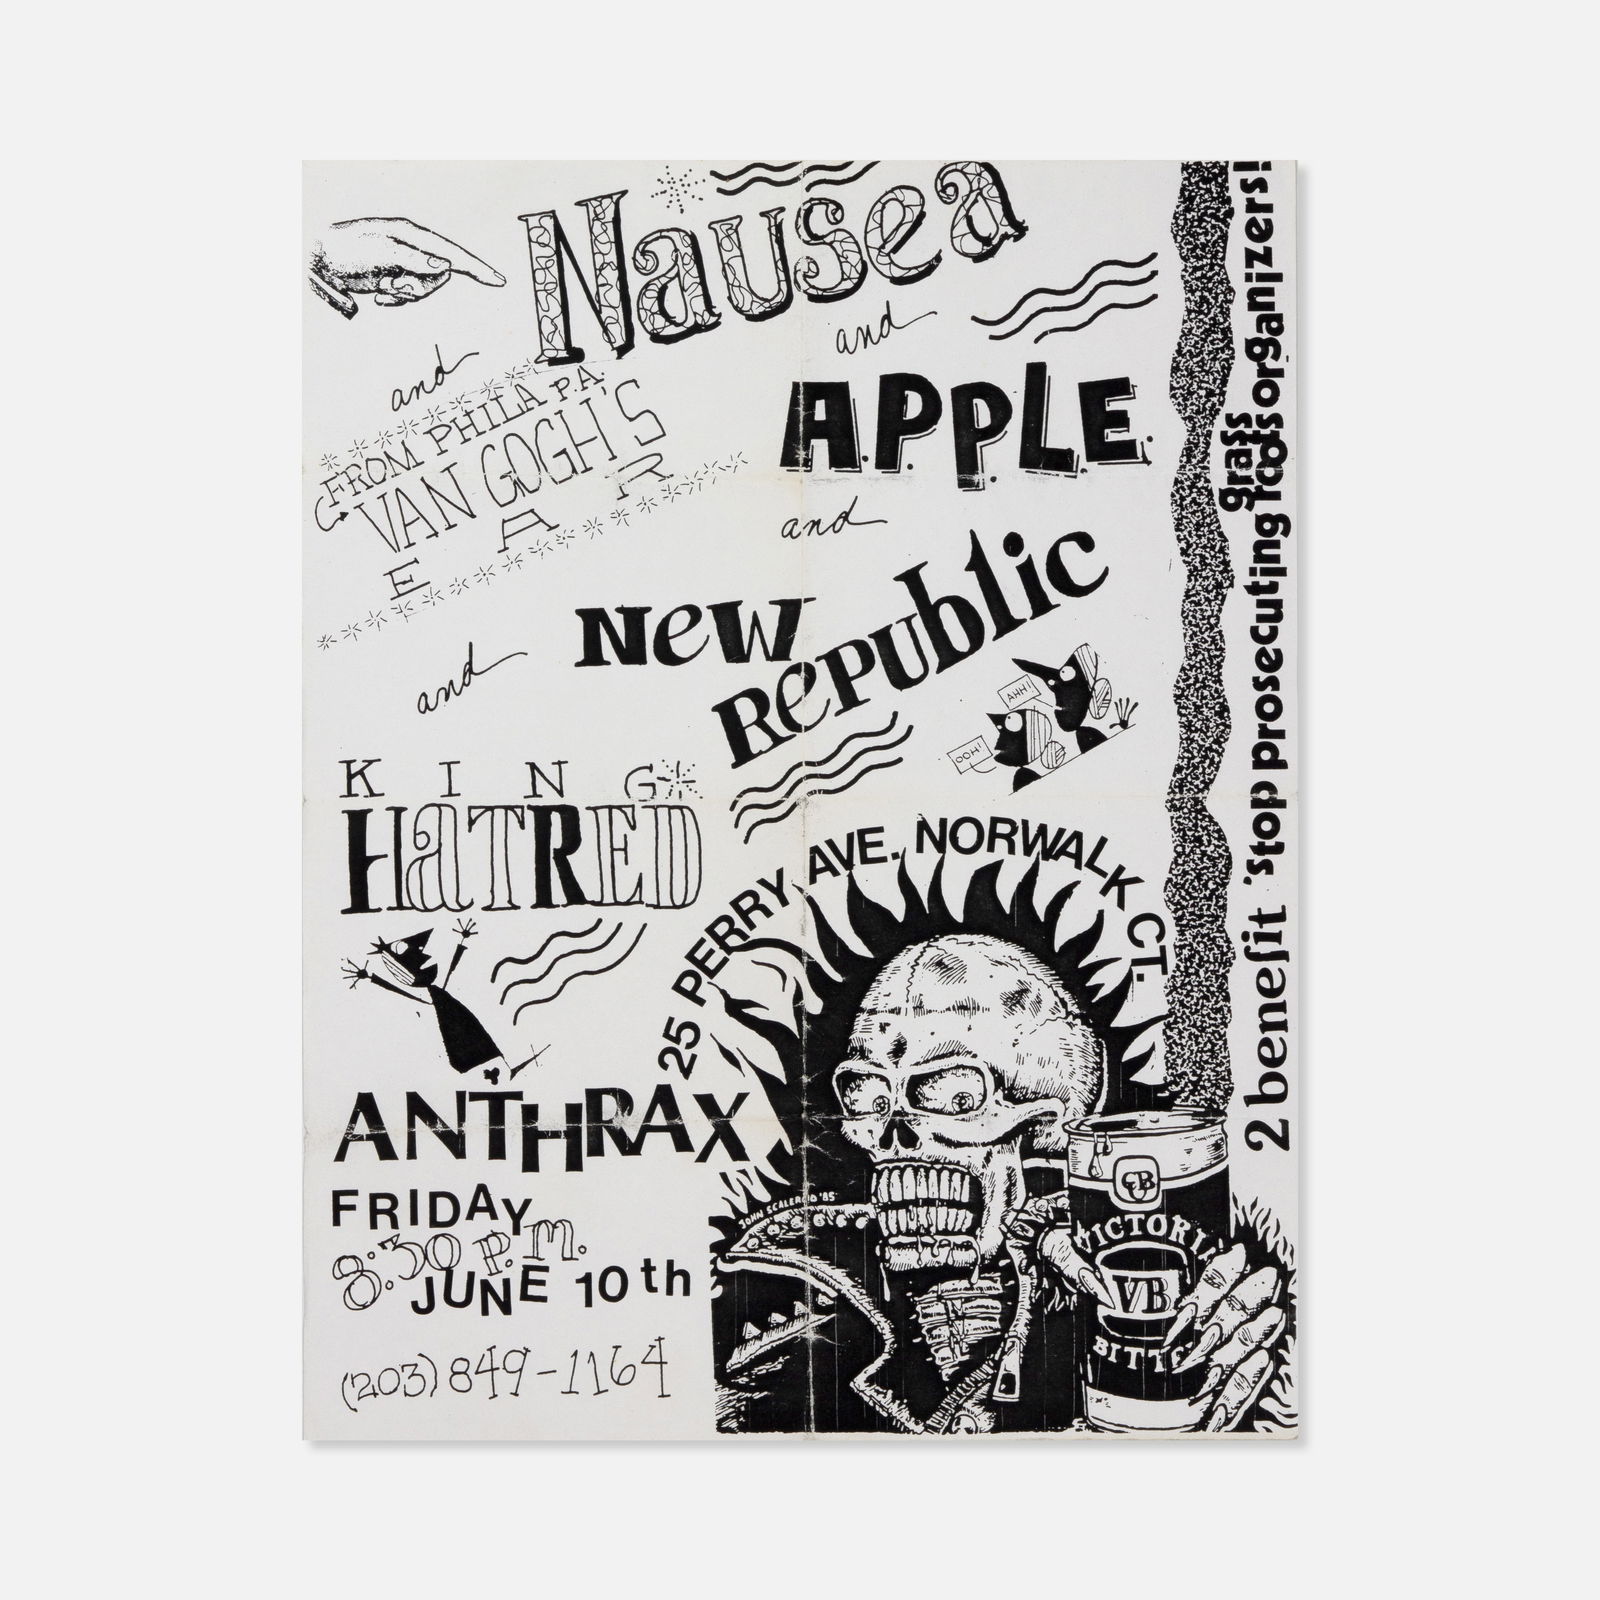 Nausea
and
A.P.P.L.E.
and
FROM PHILA P.A.
VAN GOGH'S
EAR
and
New
Republic
AHH!
OOH!
and
KING
HaTRED
ANTHRAX
25 PERRY AVE. NORWALK CT.
FRIDAY
8:30 P.M.
JUNE 10th
(203) 849-1164
VICTORIA
VB
BITTE
2 benefit 'stop prosecuting grass roots organizers!